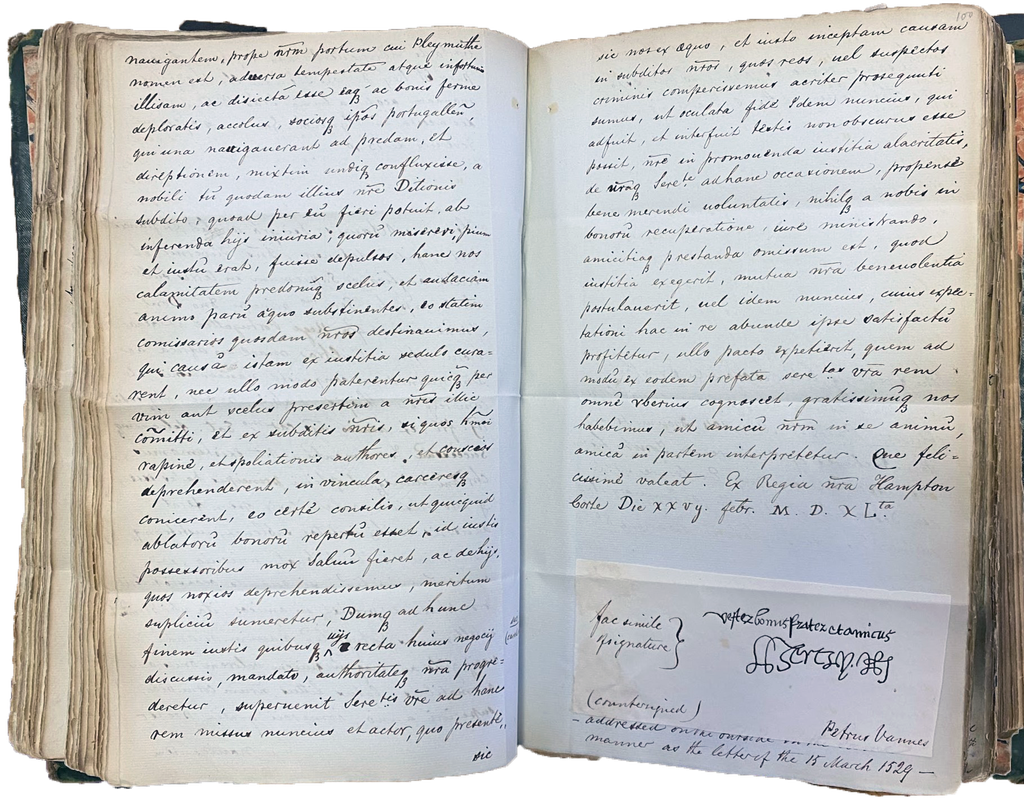 nauigantem, prope nr̃m portum cui Pleymuthe
nomen est, aduersa tempestate atque infortunio
illisam, ac disiectā esse eaqȝ ac bonis ferme
deploratis, accolas, sociosqȝ ipõs portugalleñ,
qui una nauigauerant ad predam, et
direptionem, mixtim undiqȝ confluxisse, a
nobili tū quodam illius nr̃e Ditionis
subdito, quoad per eū fieri potuit, ab
inferenda hijs iniuria; quorū misereri, pium
et iustū erat, fuisse depulsos, hanc nos
calamitatem predonūqȝ scelus, et audaciam
animo parū æquo substinentes, eo statim
comissarios quosdam nr̃os destinauimus,
qui causā istam ex iustitia sedulo cura=
rent, nec ullo modo paterentur quicqȝ per
vim aut scelus presertim a nr̃is illic
com̃itti, et ex subditis nr̃is, si quos hm̃oi
rapinē, et spoliationis authores, et conscios
deprehenderent, in vincula, carceresqȝ
conicerent, eo certē consilio, ut quicquid
ablatorū bonorū repertū esset, id iustis
possessoribus mox saluū fieret, ac de hijs,
quos noxios deprehendissemus, meritum
supliciū sumeretur, Dumqȝ ad hunc
finem iustis quibusqȝ uijs recta huius negocij
discussio, mandato, authoritateqȝ nr̃a progre=
deretur, superuenit Sere^tis vr̃e ad hanc
rem missus nuncius et actor, quo presentē,
sic
100
sic nos ex æquo, et iusto inceptam causam
in subditos nr̃os, quos reos, uel suspectos
criminis comperissemus acriter prosequuti
sumus, ut oculata fide Idem nuncius, qui
adfuit, et interfuit testis non obscurus esse
possit, nr̃e in promouenda iustitia alacritatis,
de nr̃aqȝ Sere^te ad hanc occasionem, propensē
bene merendi voluntatis, nihilqȝ a nobis in
bonorū recuperatione, iure ministrando,
amicitiaqȝ prestanda omissum est, quod
iustitia exegerit, mutua nr̃a beneuolentia
postulauerit, uel idem nuncius, cuius expec=
tationi hac in re abunde ipse satisfactū
profitetur, ullo pacto expetierit, quem ad
modū ex eodem prefata sere^tas vr̃a rem
omnē vberius cognoscet, gratissimūqȝ nos
habebimus, ut amicū nr̃m in se animū,
amicā in partem interpretetur. Que feli=
cissime valeat. Ex Regia nr̃a Hampton
Corte Die xxvij. febr. M. D. XL^ta.
fac simile
of signature }
vester bonus frater et amicus
(countersigned)
Petrus Vannes
– addressed on the outside in the
manner as the letter of the 15 March 1529 –